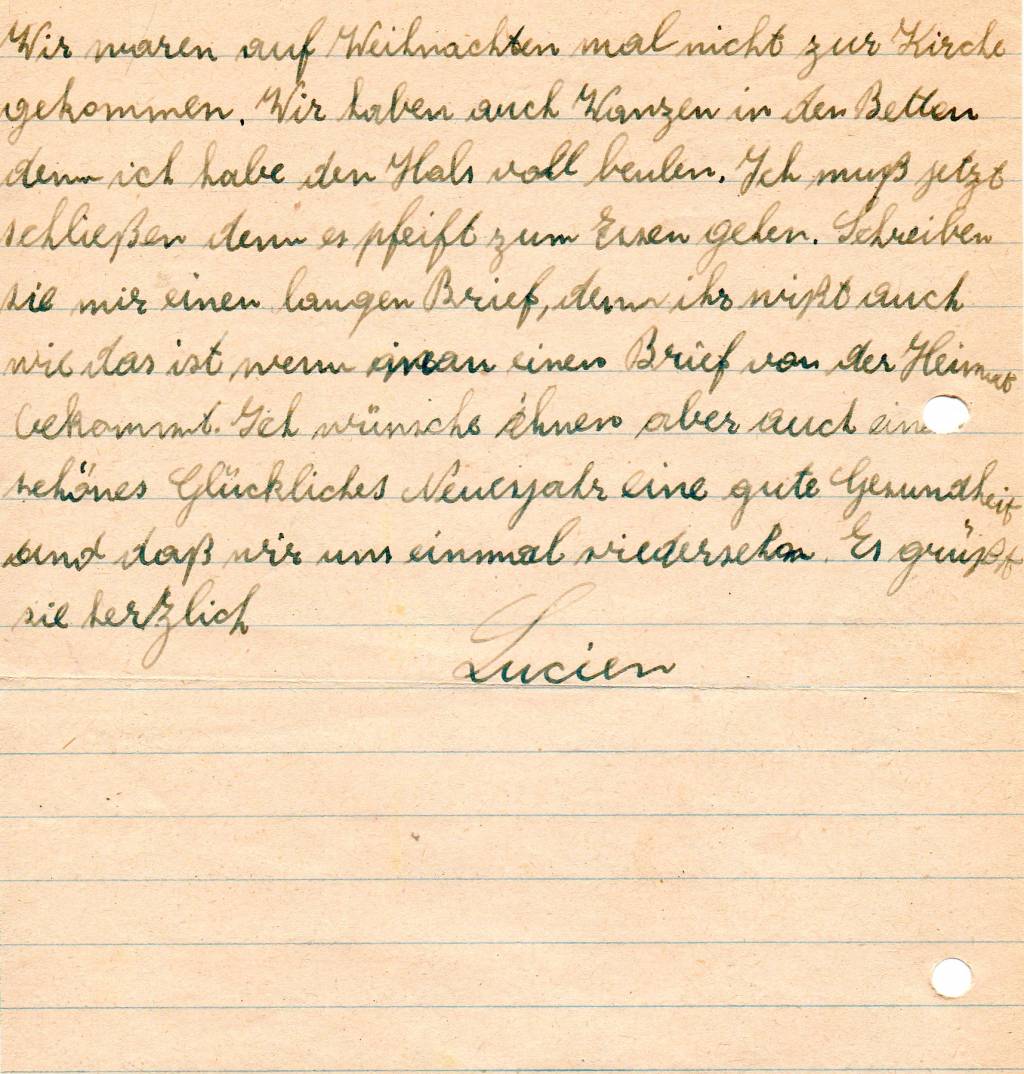 Wir waren auf Weihnachten mal nicht zur Kirche
gekommen. Wir haben auch Wanzen in den Betten
denn ich habe den Hals voll beulen. Ich muß jetzt
schließen denn es pfeift zum Essen gehen. Schreiben
sie mir einen langen Brief, denn ihr wißt auch
wie das ist wenn man einen Brief von der Heimat
bekommt. Ich wünsche ihnen aber auch ein
schönes Glückliches Neuesjahr eine gute Gesundheit
und daß wir uns einmal wiedersehen. Es grüßt
sie herzlich
Lucien